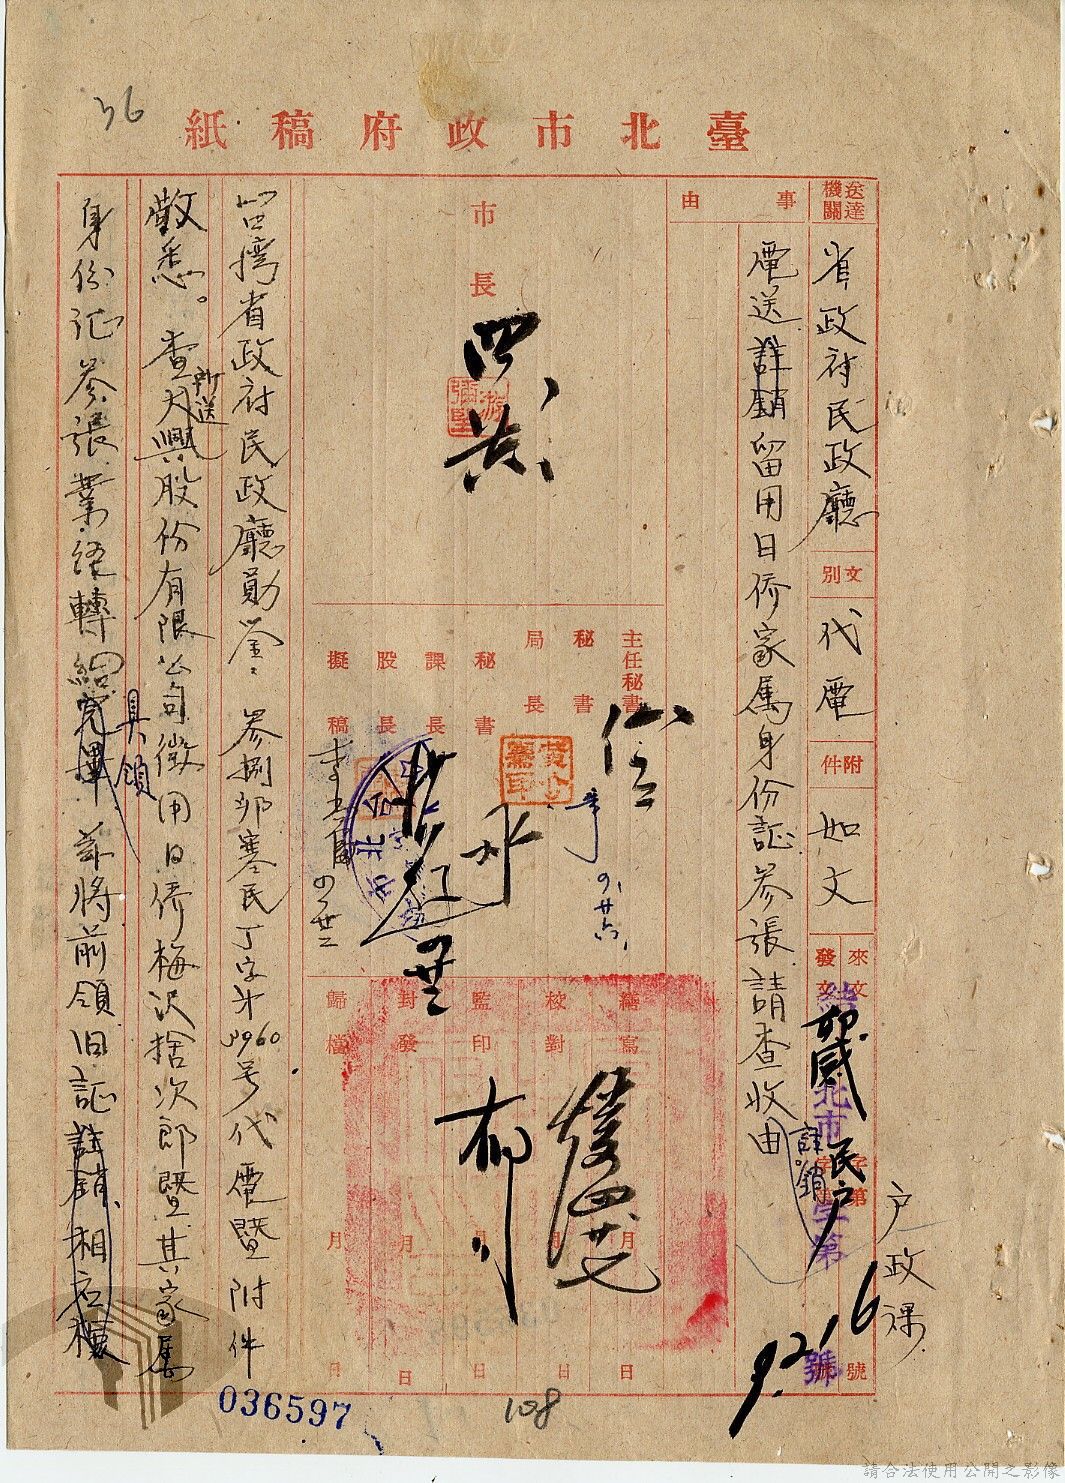 臺北市政府稿紙
36
送達機關
省政府民政廳
文別
代電
附件
如文
來文
發文
字第
號
民户
9216
户政課
事由
電送註銷留用日侨家属身份証叁張請查收由
註銷
市長
游彌堅
主任秘書
秘書
局長
秘書
課長
股長
擬稿
繕寫
校對
監印
封發
歸檔
月 日
月 日
月 日
月 日
月 日
台湾省政府民政廳勛鑒：叁捌卯寒民丁字第3960号代電暨附件
敬悉。查大興股份有限公司徵用日侨梅沢捨次郎暨其家属
所送
身份証叁張業經轉給
具領
茲將前領旧証註銷相应檢
036597
108
請合法使用公開之影像